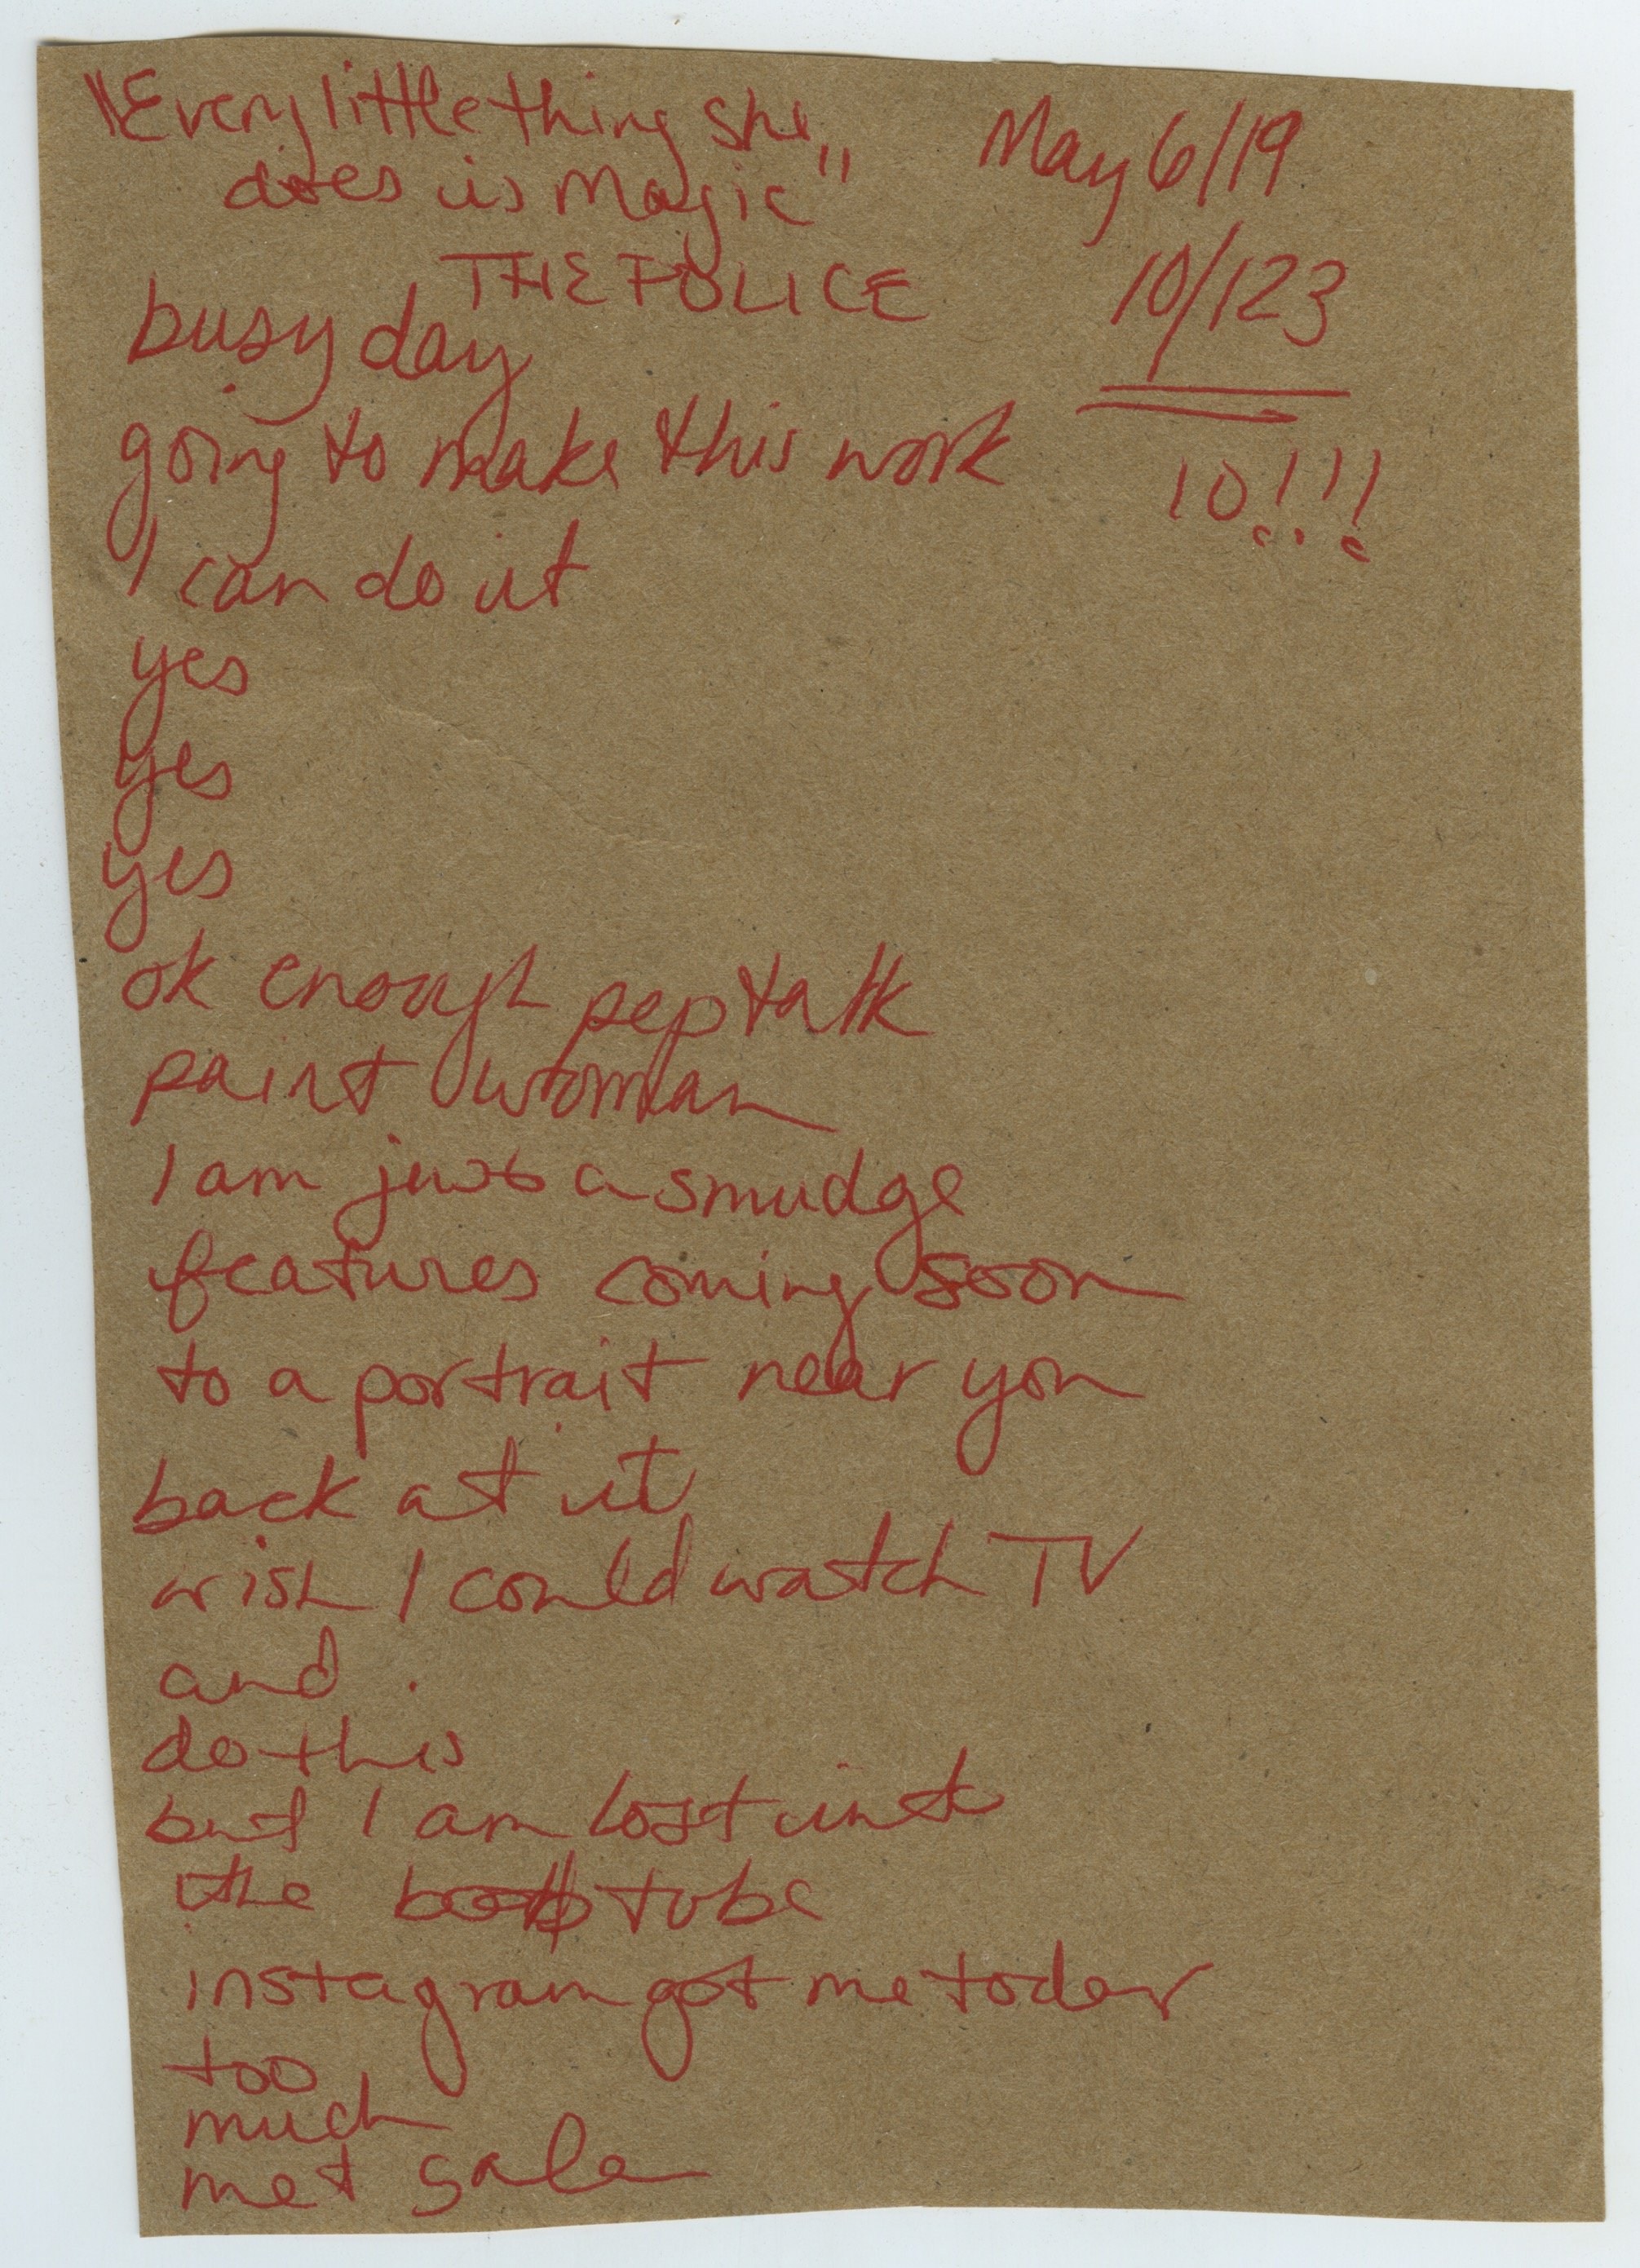 "Every little thing she
does is Magic"
THE POLICE
May 6/19
10/123
10!!!
busy day
going to make this work
I can do it
yes
yes
yes
ok enough pep talk
paint woman
I am just a smudge
features coming soon
to a portrait near you
back at it
wish I could watch TV
and
do this
but I am lost into
the boob tube
instagram got me today
too
much
met gala